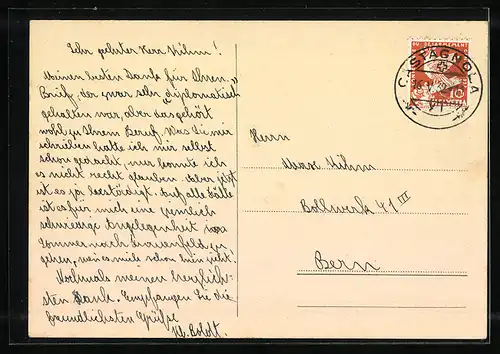 Sehr geehrter Herr Hühm!
Meinen besten Dank für Ihren
Brief, der zwar sehr „diplomatisch"
gehalten war, aber das gehört
wohl zu Ihrem Beruf. Was Sie mir
schrieben hatte ich mir selbst
schon gedacht, nur konnte ich
es nicht recht glauben. Aber jetzt
ist es ja bestätigt. Auf alle Fälle
ist es für mich eine ziemlich
schwierige Angelegenheit im
Sommer nach Frauenfeld zu
gehen, weil es mir schon
Nochmals meinen herzlich-
sten Dank. Empfangen Sie die
freundlichsten Grüsse
W. Boldt.
CASTAGNOLA
10
Herrn
Max Hühm
Bollwerk 41 III
Bern